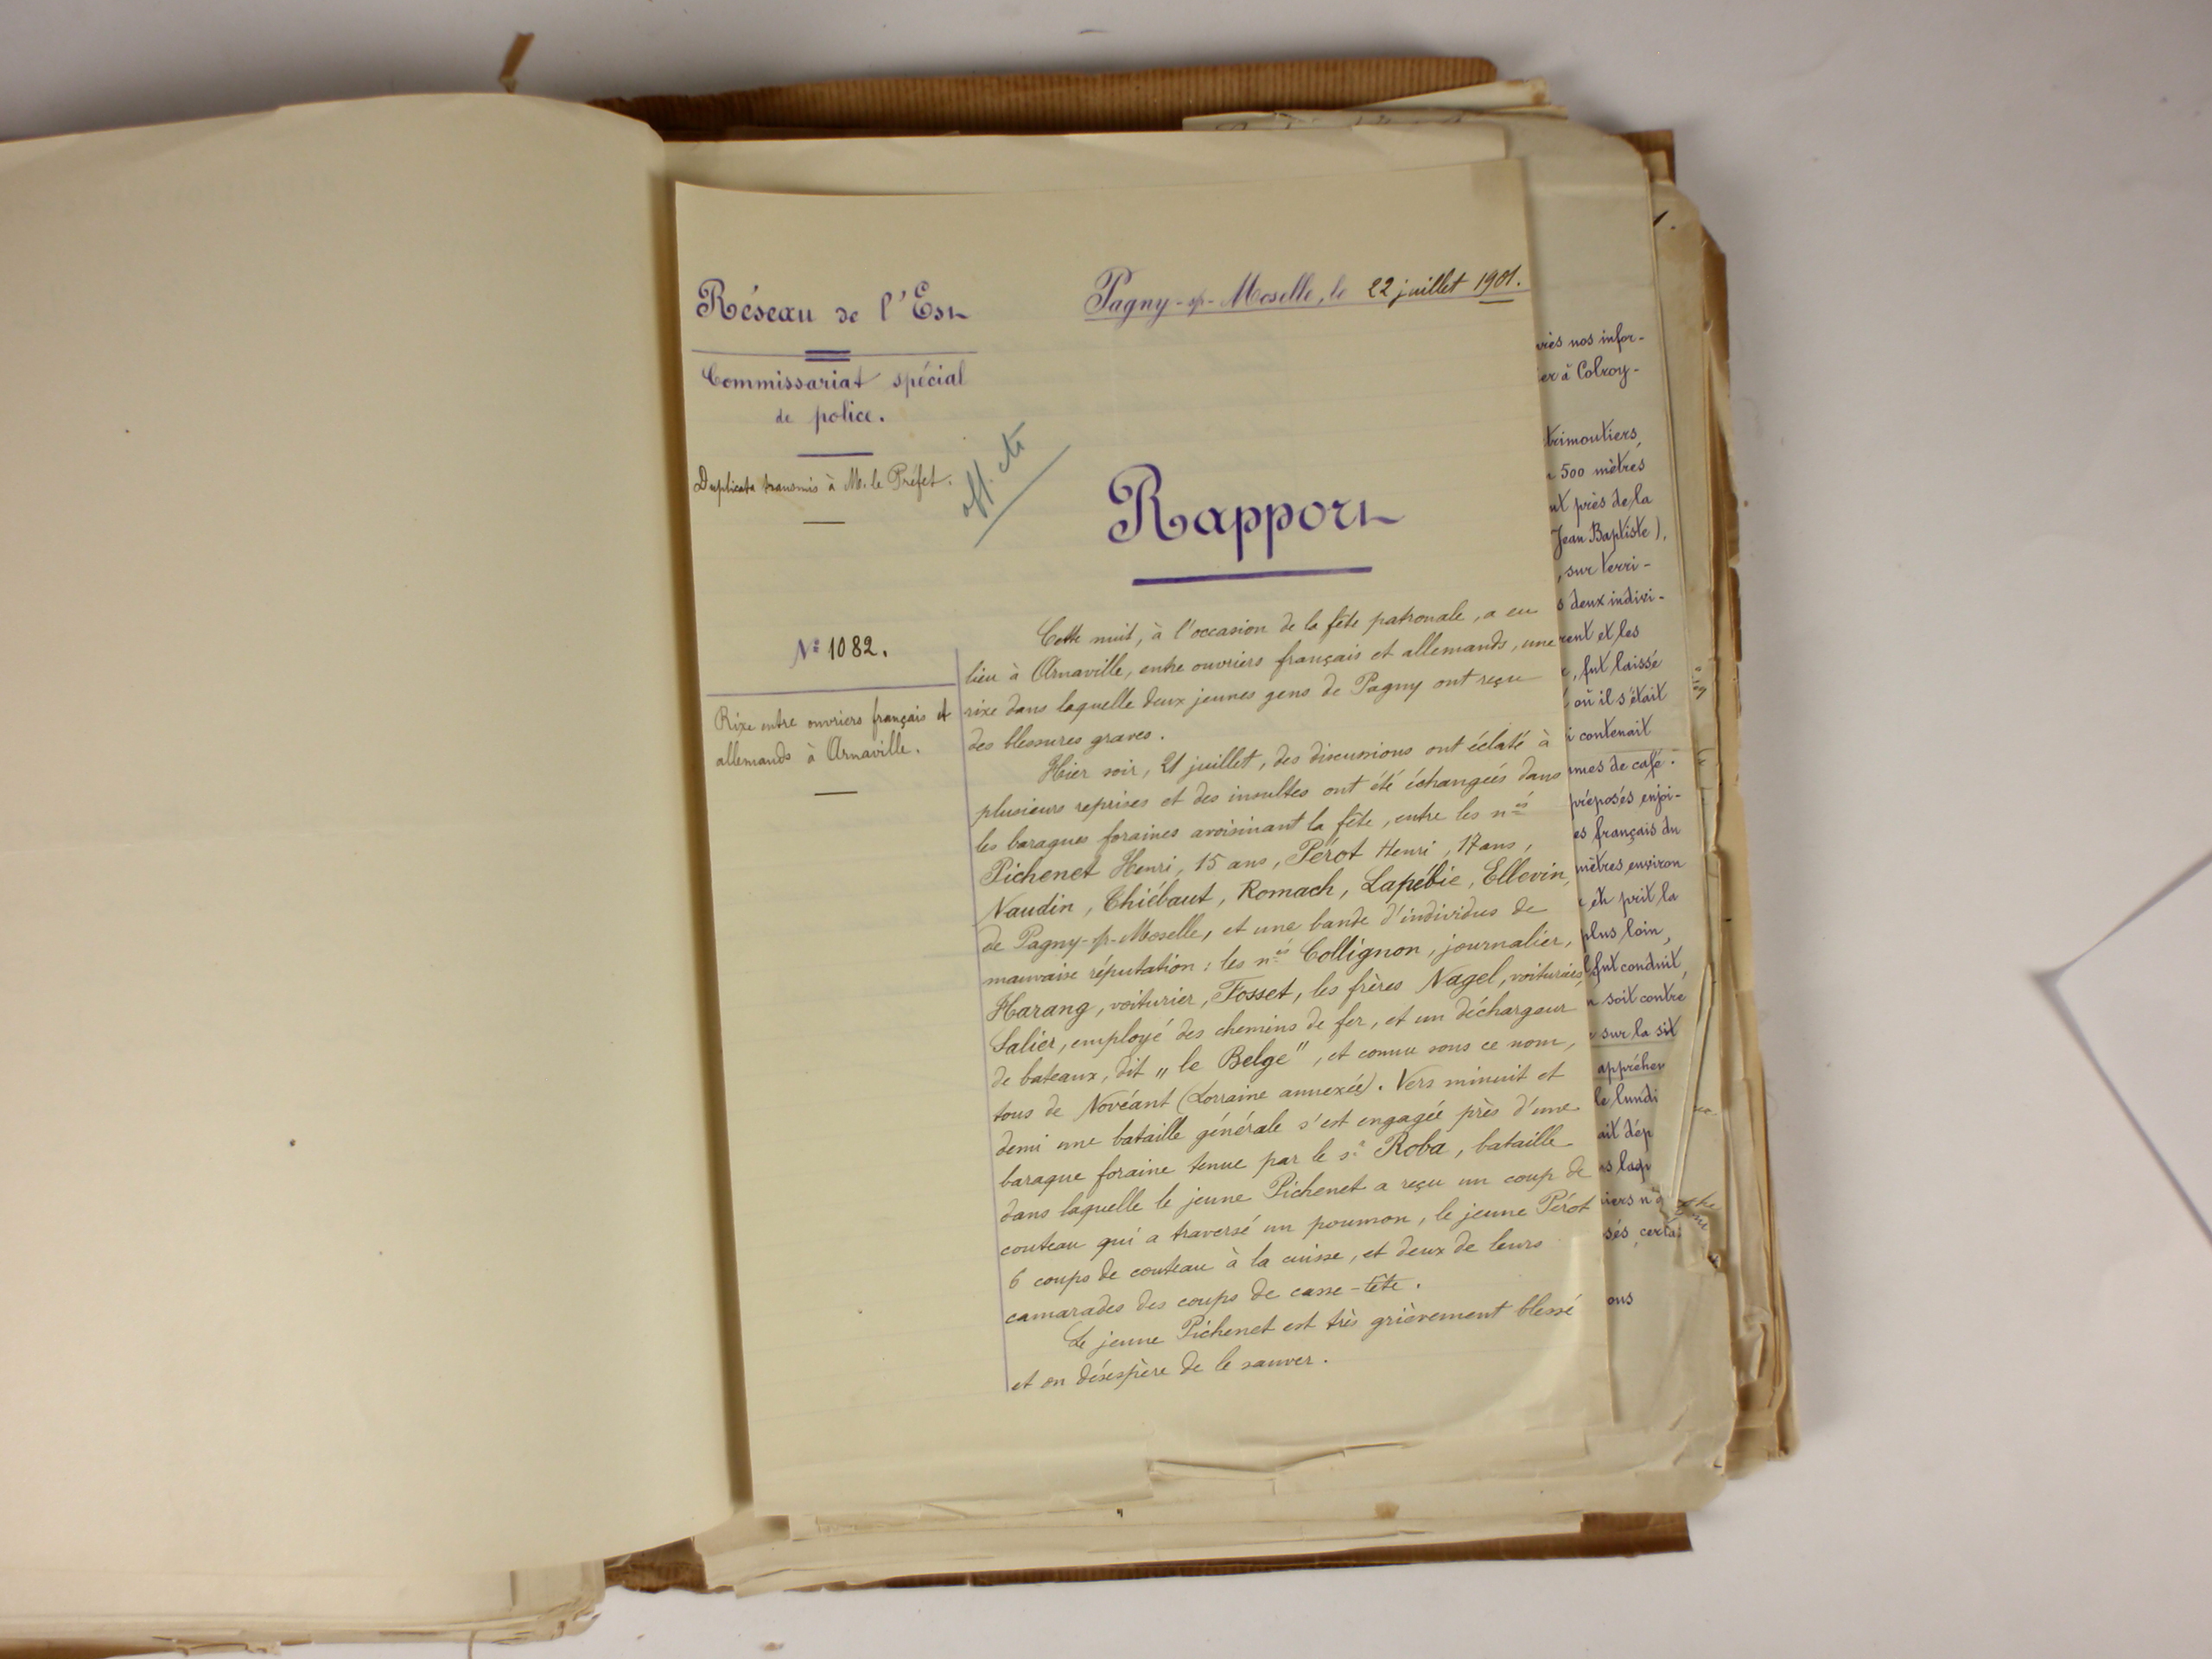 Réseau de l'Est
Commissariat spécial
de police.
Duplicata transmis à M. le Préfet.
Pagny-s/-Moselle, le 22 juillet 1901.
Rapport
N° 1082.
Rixe entre ouvriers français et
allemands à Arnaville.
Cette nuit, à l'occasion de la fête patronale, a eu
lieu à Arnaville, entre ouvriers français et allemands, une
rixe dans laquelle deux jeunes gens de Pagny ont reçu
des blessures graves.
Hier soir, 21 juillet, des discussions ont éclaté à
plusieurs reprises et des insultes ont été échangées dans
les baraques foraines avoisinant la fête, entre les nés
Pichenet Henri, 15 ans, Pérot Henri, 17 ans,
Naudin, Thiébaut, Romach, Lapébie, Ellevin,
de Pagny-s/-Moselle, et une bande d'individus de
mauvaise réputation : les nés Collignon, journalier,
Harang, voiturier, Fosset, les frères Nagel, voituriers,
Salier, employé des chemins de fer, et un déchargeur
de bateaux, dit "le Belge", et connu sous ce nom,
tous de Novéant (Lorraine annexée). Vers minuit et
demi une bataille générale s'est engagée près d'une
baraque foraine tenue par le sr Roba, bataille
dans laquelle le jeune Pichenet a reçu un coup de
couteau qui a traversé un poumon, le jeune Pérot
6 coups de couteau à la cuisse, et deux de leurs
camarades des coups de casse-tête.
Le jeune Pichenet est très grièvement blessé
et on désespère de le sauver.
nos infor-
er à Colroy-
trimoutiers,
500 mètres
près de la
Jean Baptiste),
, sur terri-
deux indivi-
et les
, fut laissé
où il s'était
contenait
de café.
préposés enjoi-
es français du
mètres environ
et prit la
plus loin,
fut conduit,
soit contre
sur la sit
appréhen
le lundi
ait dép
ous